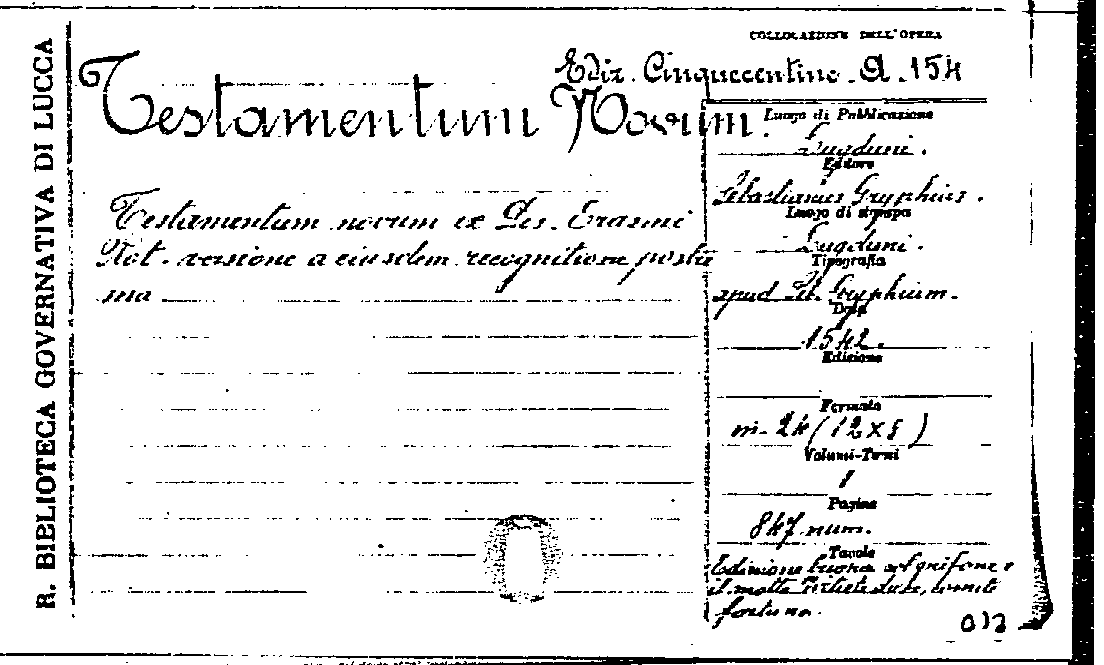 R. BIBLIOTECA GOVERNATIVA DI LUCCA
COLLOCAZIONE DELL'OPERA
Ediz. Cinquecentine. A. 154
Testamentum Novum.
Testamentum novum ex Des. Erasmi
Rot. versione a eiusdem recognitione postre
ma
Luogo di Pubblicazione
Lugduni.
Editore
Sebastianus Gryphius.
Luogo di stampa
Lugduni.
Tipografia
apud Seb. Gryphium.
Data
1542.
Edizione
Formato
in-24 (12x8)
Volumi-Tomi
1
Pagine
847 num.
Tavole
Edizione buona col grifone e
il motto Virtute duce, comite
fortuna.